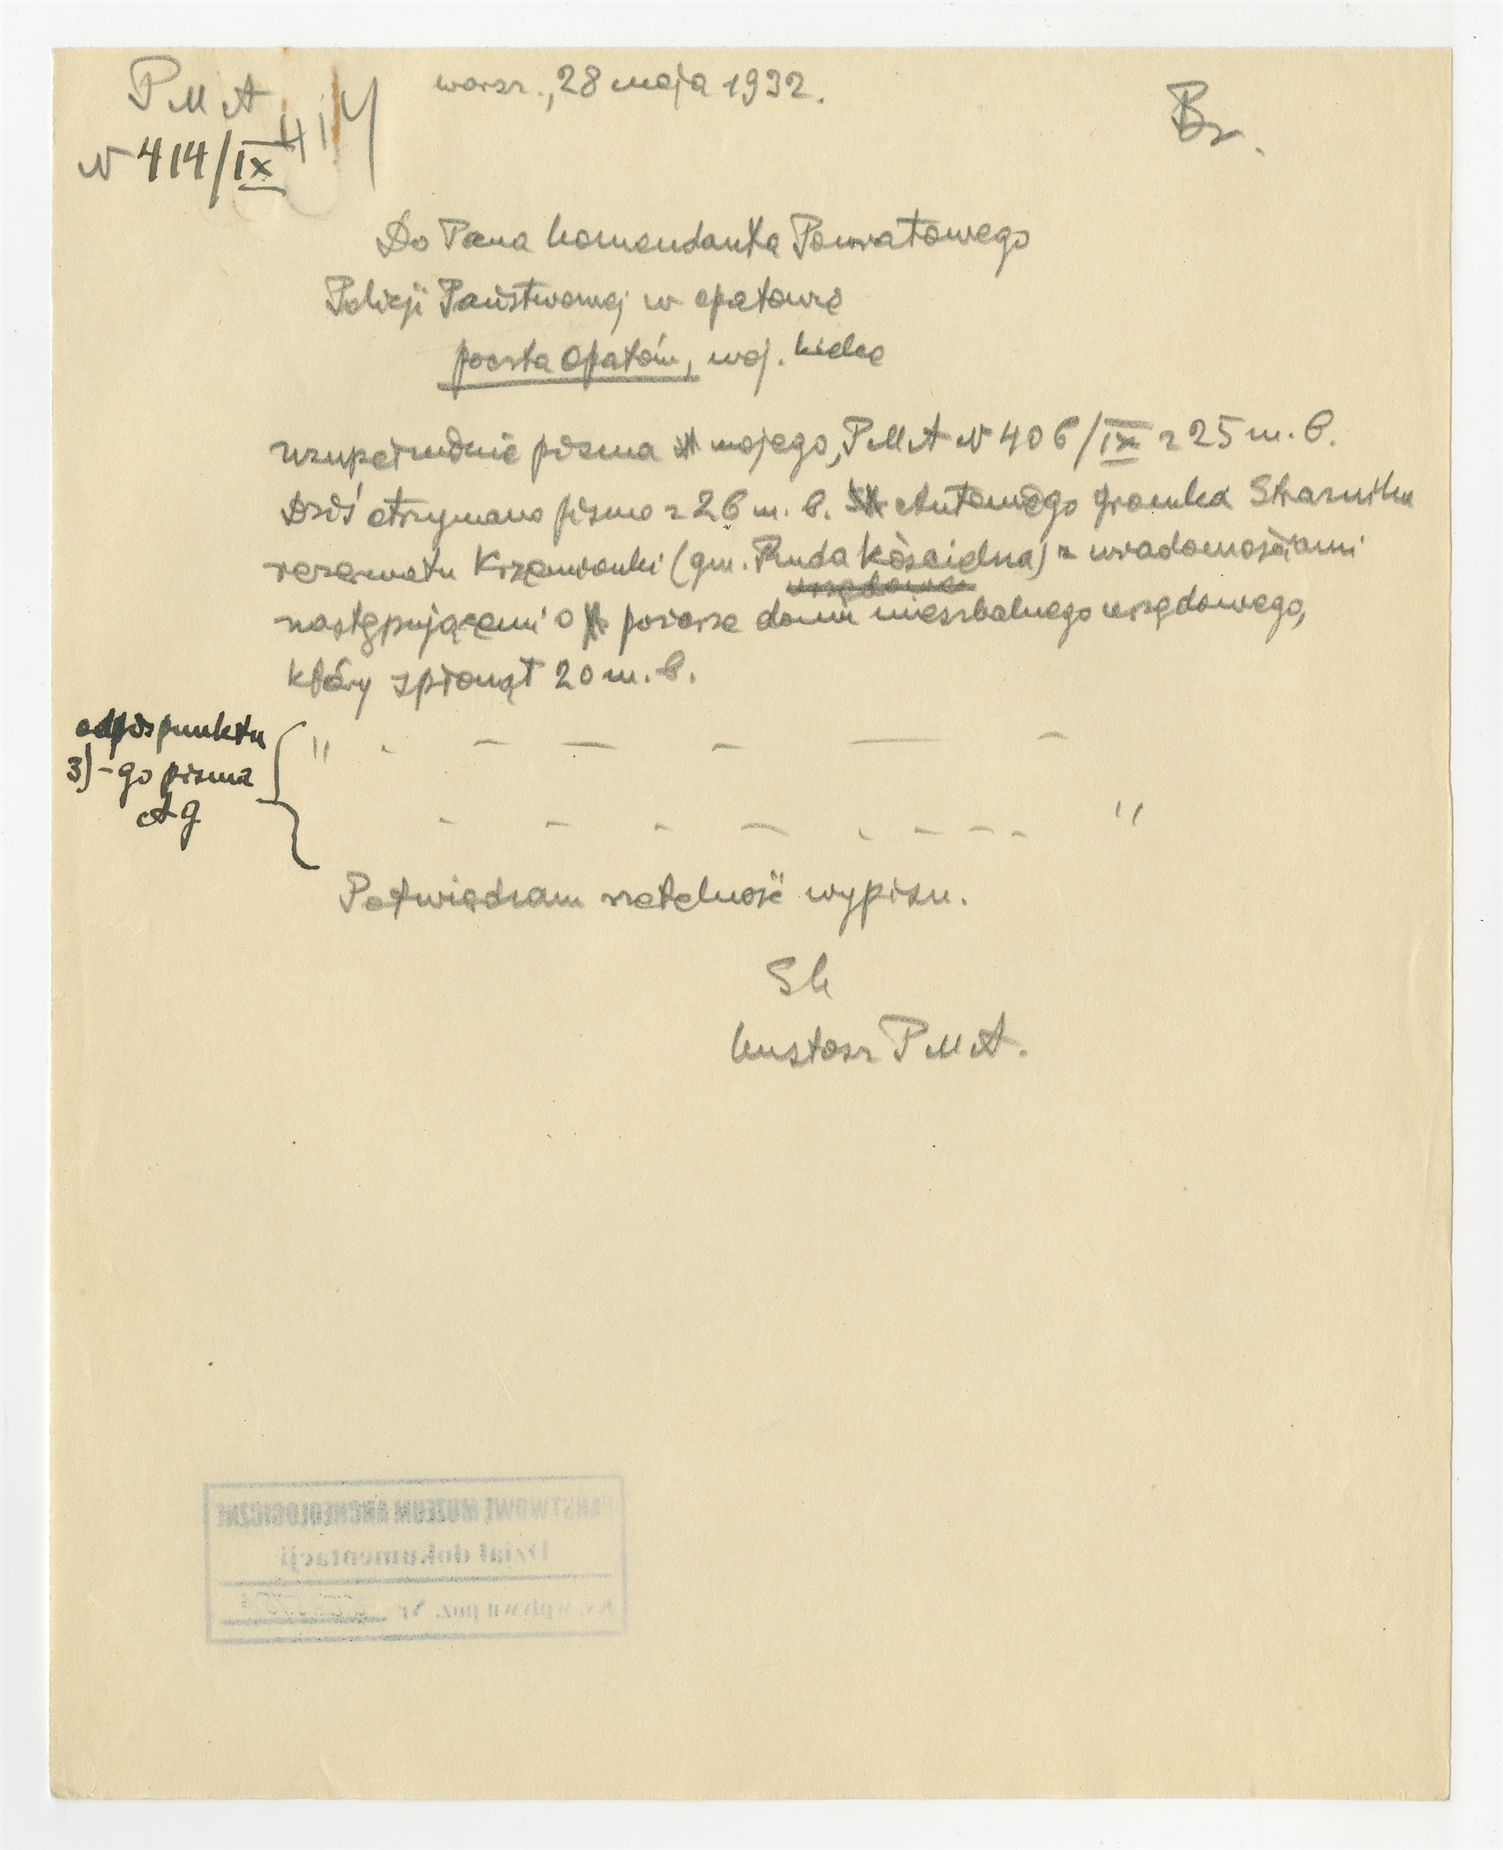 PMA
warsz., 28 maja 1932.
Br.
N 414/IX
Do Pana komendanta Powiatowego
Policji Państwowej w opatowie
poczta Opatów, woj. kielce
uzupełnienie pisma mojego, PMA N 406/IX z 25 m. b.
Dziś otrzymano pismo z 26 m. b. Antoniego Gromka Strażnika
rezerwatu Krzemionki (gm. Ruda Kościelna) z wiadomościami
urzędowe
następującemi o pożarze domu mieszkalnego urzędowego,
który spłonął 20 m. b.
odpis punktu
3)-go pisma
AG
" . - — - — -
- - - - . - - - "
Potwierdzam rzetelność wypisu.
Sk
kustosz PMA.
PAŃSTWOWE MUZEUM ARCHEOLOGICZNE
Dział dokumentacji
Ks. wpływu poz. Nr